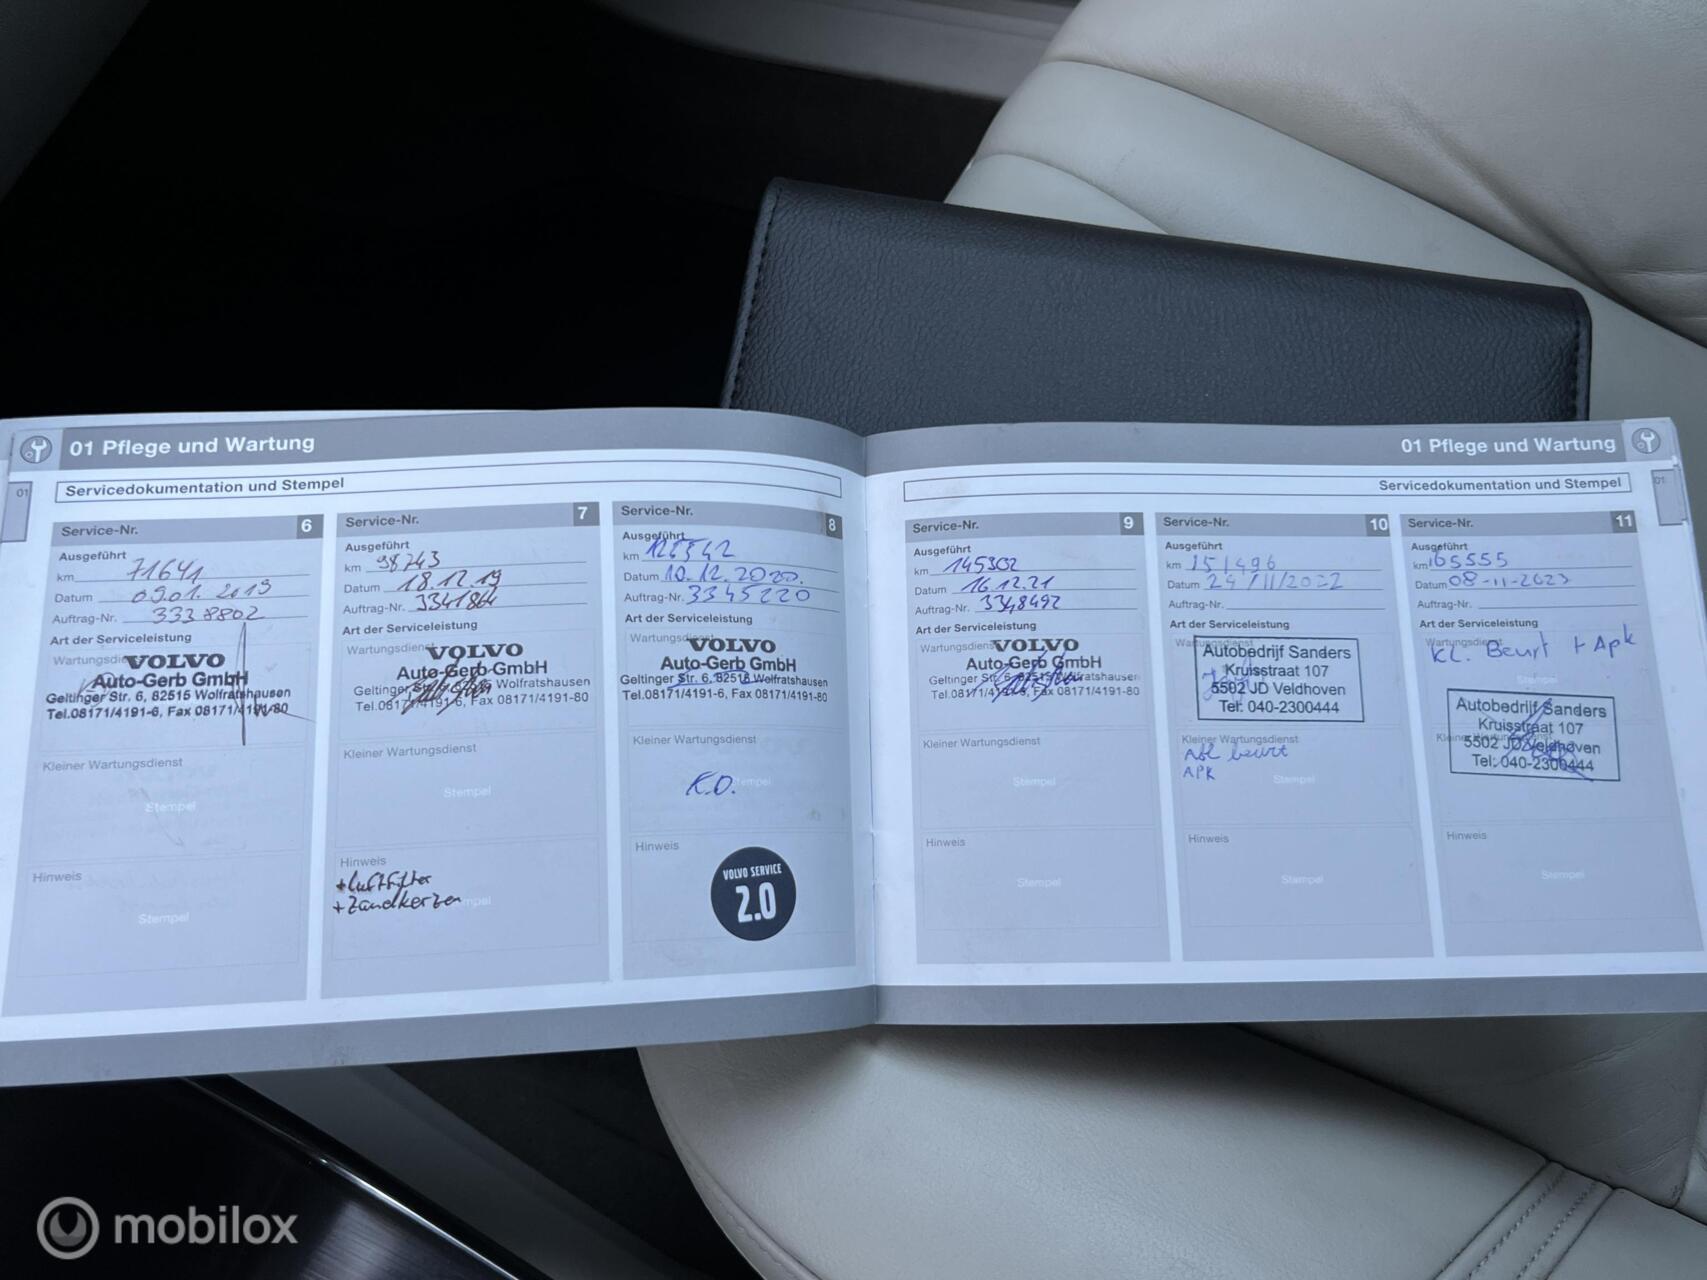 01 Pflege und Wartung
Servicedokumentation und Stempel
01
Service-Nr. 6
Ausgeführt
km 71641
Datum 09.01.2019
Auftrag-Nr. 3338802
Art der Serviceleistung
Wartungsdienst
VOLVO
Auto-Gerb GmbH
Geltinger Str. 6, 82515 Wolfratshausen
Tel.08171/4191-6, Fax 08171/4191-80
Kleiner Wartungsdienst
Stempel
Hinweis
Stempel
Service-Nr. 7
Ausgeführt
km 98743
Datum 18.12.19
Auftrag-Nr. 3341864
Art der Serviceleistung
Wartungsdienst
VOLVO
Auto-Gerb GmbH
Geltinger Str. 6, 82515 Wolfratshausen
Tel.08171/4191-6, Fax 08171/4191-80
Kleiner Wartungsdienst
Stempel
Hinweis
+Luftfilter
+Zündkerzen
Stempel
Service-Nr. 8
Ausgeführt
km
Datum 10.12.2020.
Auftrag-Nr. 3345220
Art der Serviceleistung
Wartungsdienst
VOLVO
Auto-Gerb GmbH
Geltinger Str. 6, 82515 Wolfratshausen
Tel.08171/4191-6, Fax 08171/4191-80
Kleiner Wartungsdienst
K.D. Stempel
Hinweis
VOLVO SERVICE
2.0
01 Pflege und Wartung
Servicedokumentation und Stempel
01
Service-Nr. 9
Ausgeführt
km 145302
Datum 16.12.21
Auftrag-Nr. 3348492
Art der Serviceleistung
Wartungsdienst
VOLVO
Auto-Gerb GmbH
Geltinger Str. 6, 82515 Wolfratshausen
Tel.08171/4191-6, Fax 08171/4191-80
Kleiner Wartungsdienst
Stempel
Hinweis
Stempel
Service-Nr. 10
Ausgeführt
km 151496
Datum 24/11/2022
Auftrag-Nr.
Art der Serviceleistung
Wartungsdienst
Autobedrijf Sanders
Kruisstraat 107
5502 JD Veldhoven
Tel: 040-2300444
Kleiner Wartungsdienst
beurt
APK
Stempel
Hinweis
Stempel
Service-Nr. 11
Ausgeführt
km 165555
Datum 08-11-2023
Auftrag-Nr.
Art der Serviceleistung
Wartungsdienst
KL. Beurt + Apk
Stempel
Autobedrijf Sanders
Kruisstraat 107
5502 JD Veldhoven
Tel: 040-2300444
Hinweis
Stempel
mobilox